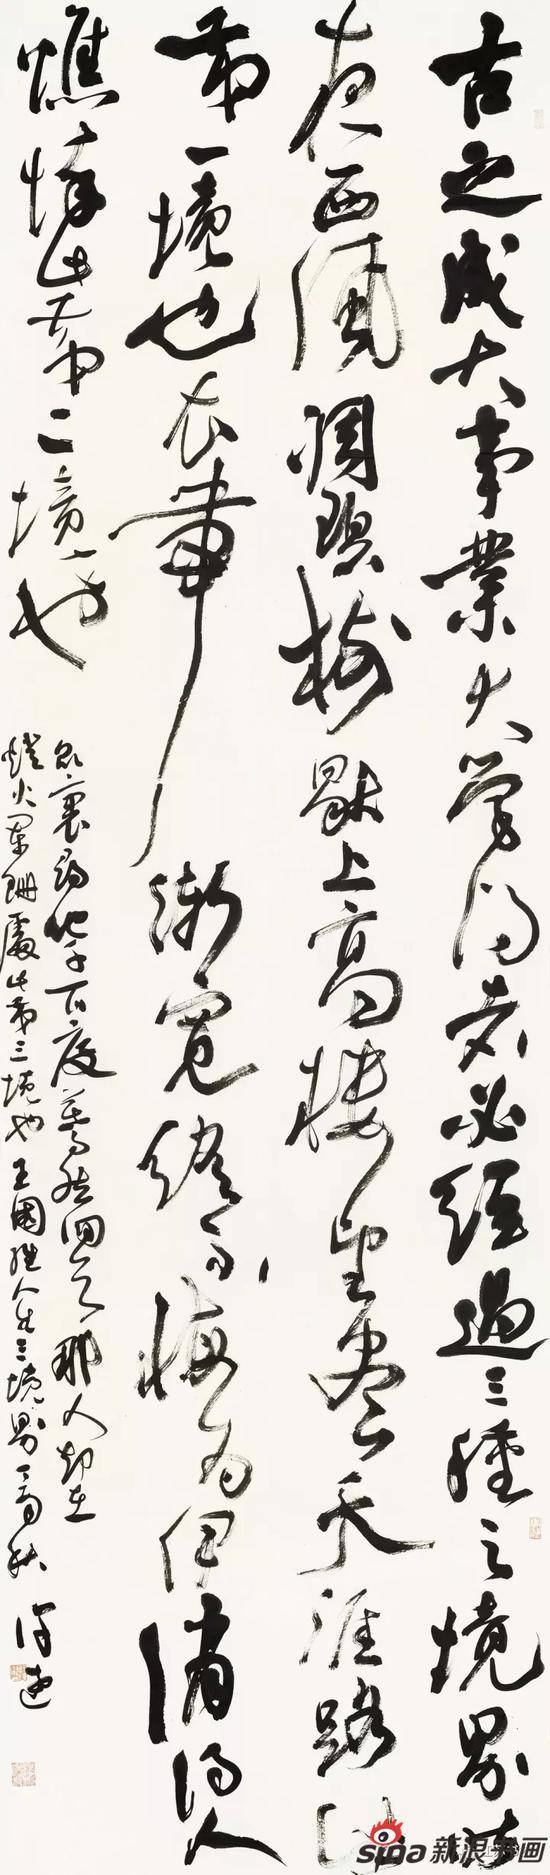 古之成大事業大學問者必經過三種之境界昨
夜西風凋碧樹獨上高樓望盡天涯路此
第一境也衣帶漸寬終不悔為伊消得人
憔悴此第二境也
眾裏尋他千百度驀然回首那人却在
燈火闌珊處此第三境也王國維人生三境界
sina 新浪书画